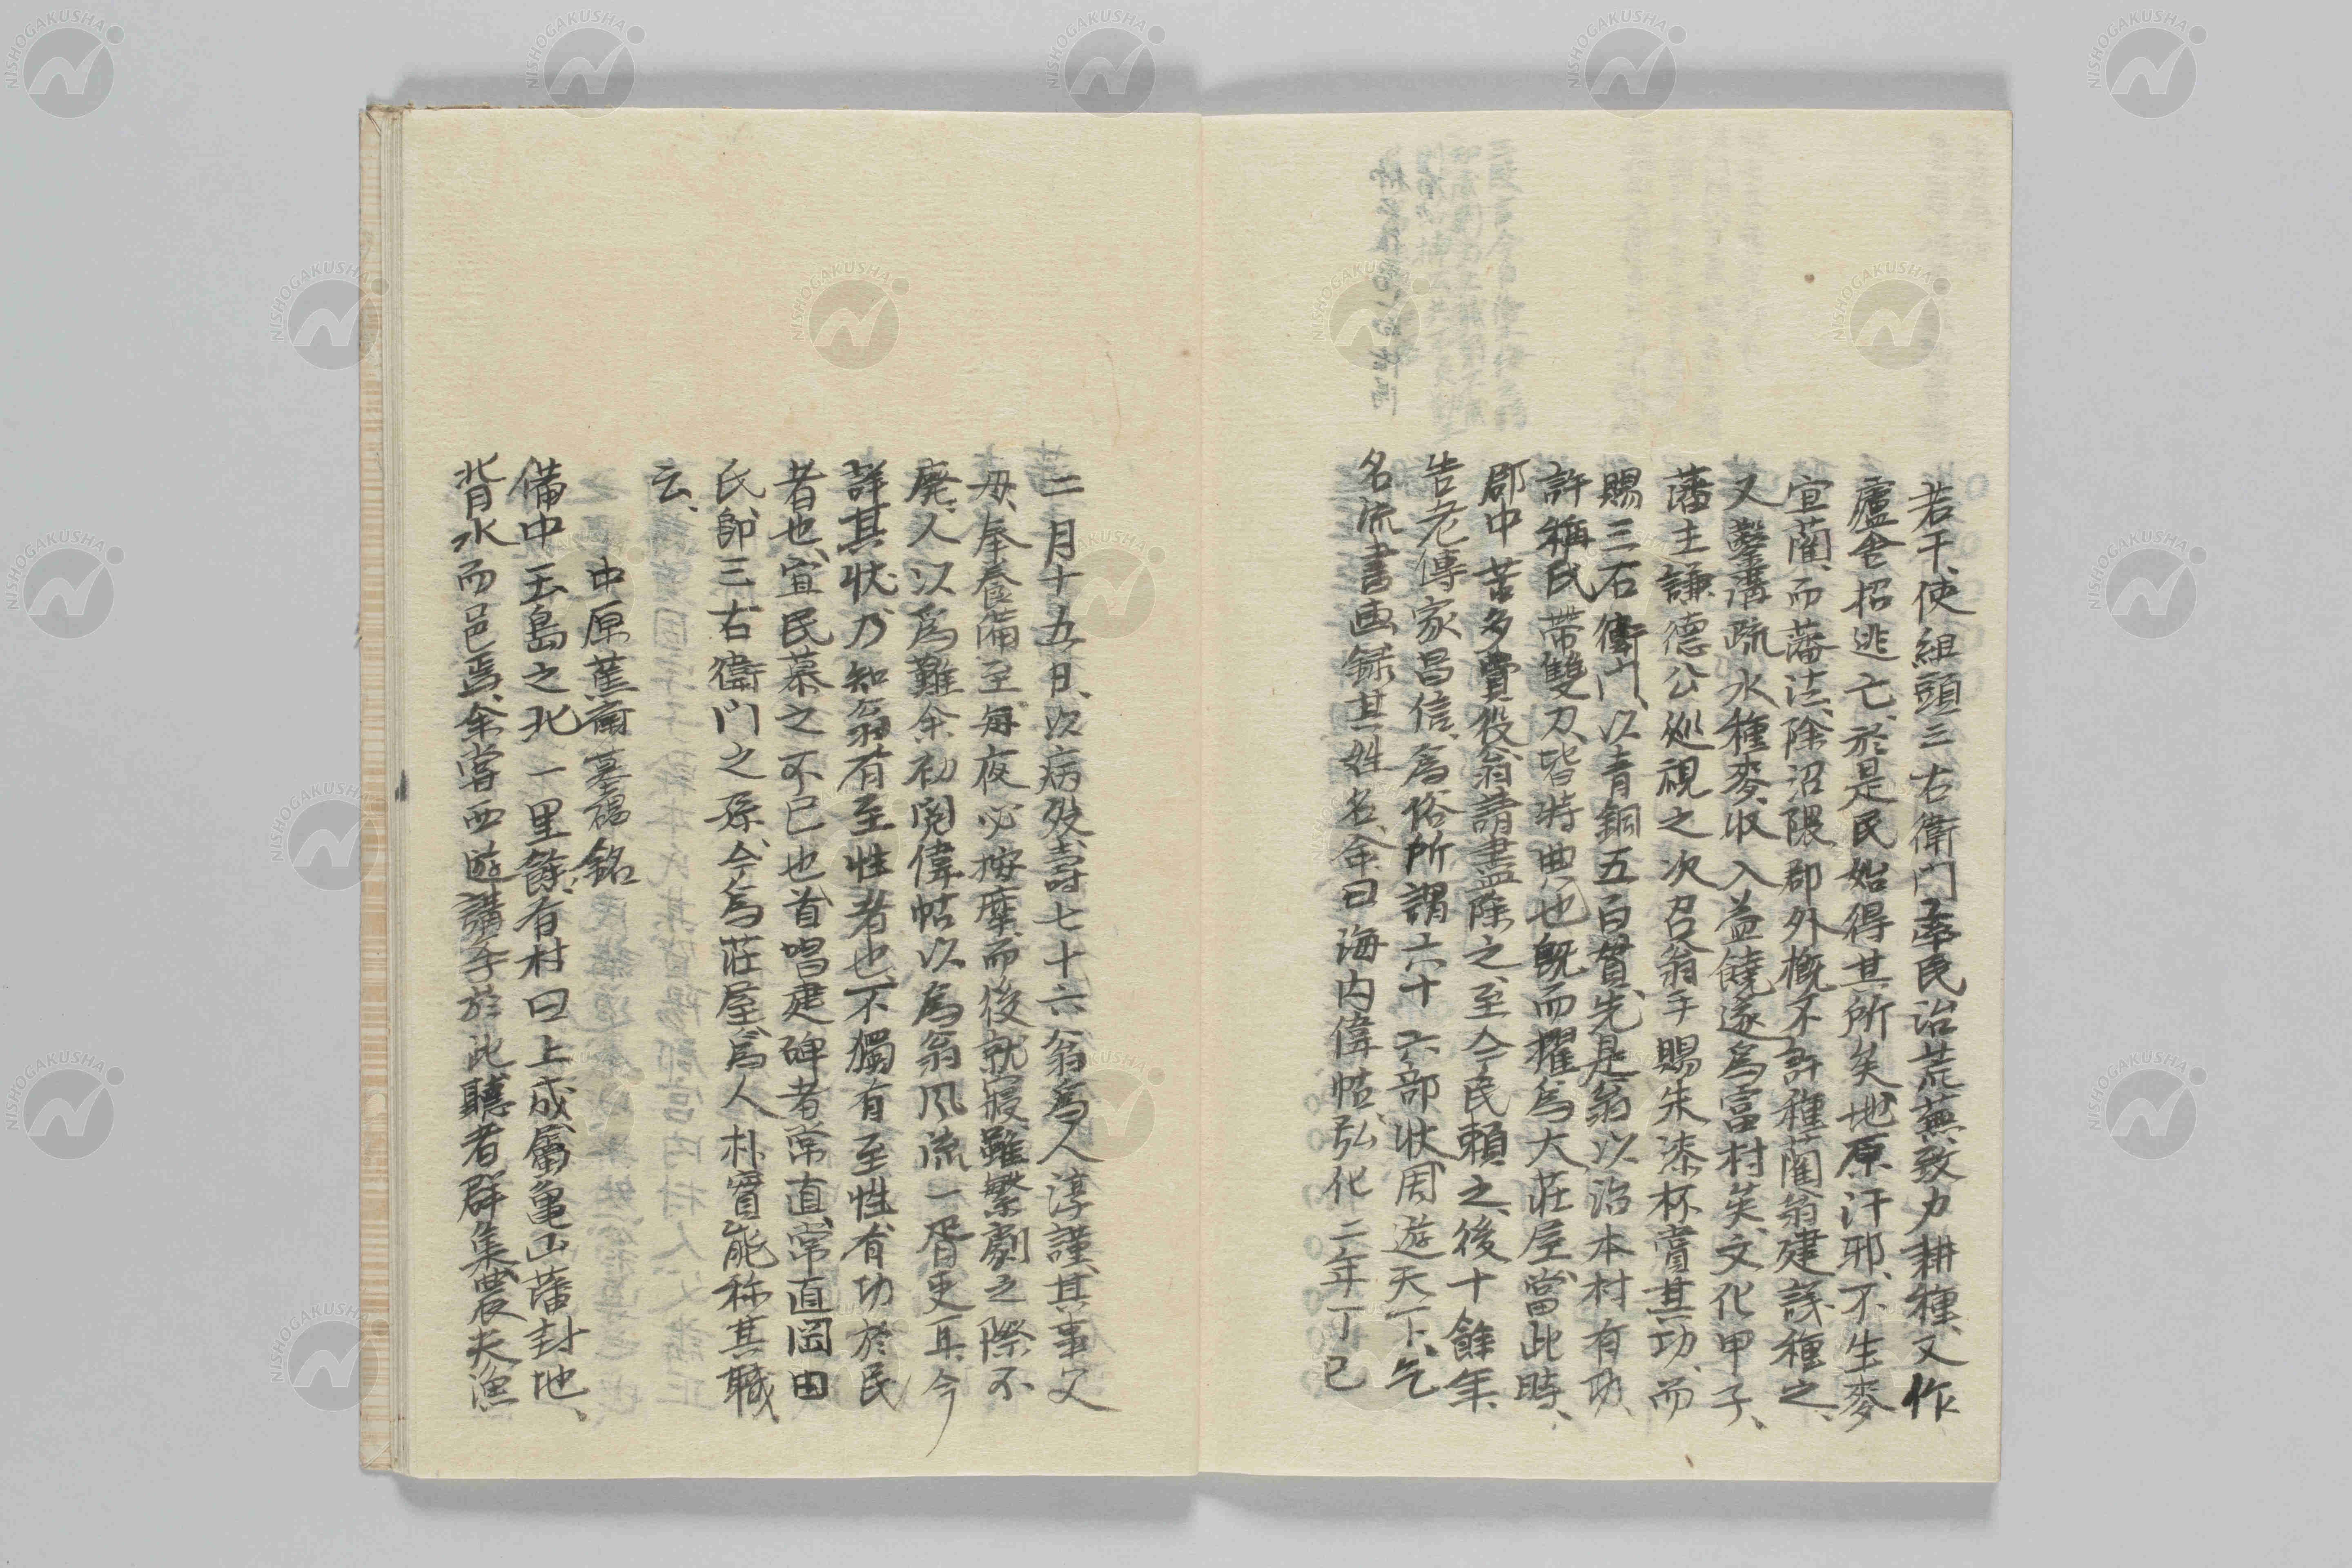 若干、使組頭三右衛門牽民治荒蕪致力耕種、又作
廬舍招逃亡、於是民始得其所矣、地原汙邪、不生麥
宜藺、而藩法、除沼隈郡外概不許種藺、翁建議種之、
又鑿溝疏水種麥、收入益饒、遂為富村矣、文化甲子、
藩主謙德公巡視之次召翁手賜朱漆杯賞其功、而
賜三右衛門、以青銅五百貫、先是翁以治本村有功、
許稱氏帶雙刀、皆特典也、既而擢為大莊屋、當此時、
郡中苦多賣役、翁請盡除之、至今民賴之、後十餘年、
告老傳家昌信、為俗所謂六十六部狀、周遊天下、乞
名流書画、錄其姓名、命曰海内偉帖、弘化二年丁巳
二月十五日、以病歿、壽七十六、翁為人淳謹、其事父
母、奉養備至、每夜必按摩、而後就寢、雖繁劇之際、不
廢、人以為難、余初閱偉帖、以為翁風流一胥吏耳、今
詳其狀、乃知翁有至性者也、不獨有至性、有功於民
者也、宜民慕之不已也、首唱建碑者常直、常直岡田
氏、即三右衛門之孫、今為莊屋、為人朴實能称其職、
云、
中原蕉齋墓碣銘
備中玉島之北一里餘、有村曰上成、屬亀山藩封地、
背水而邑焉、余嘗西遊、講学於此、聽者群集、農夫漁
NISHOGAKUSHA